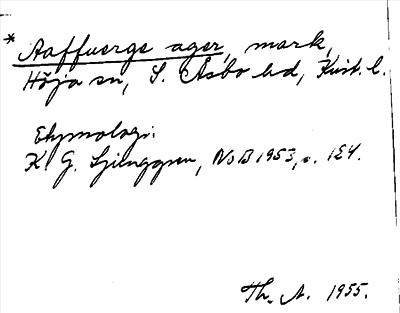 * Aaffuergs ager, mark,
Höja sn, S. Åsbo hd, Krist. l.
Etymologi:
K. G. Ljunggren, NoB 1953, s. 154.
Th. A. 1955.